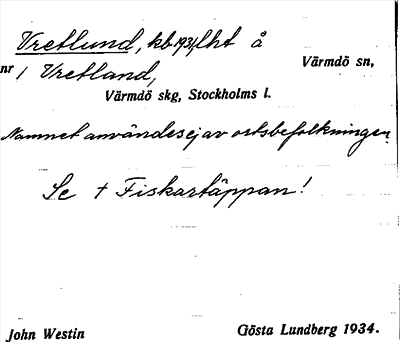 Vretlund, kb 1931, lht å Värmdö sn,
nr 1 Vretland,
Värmdö skg, Stockholms l.
Namnet användes ej av ortsbefolkningen.
Se † Fiskartäppan!
John Westin Gösta Lundberg 1934.